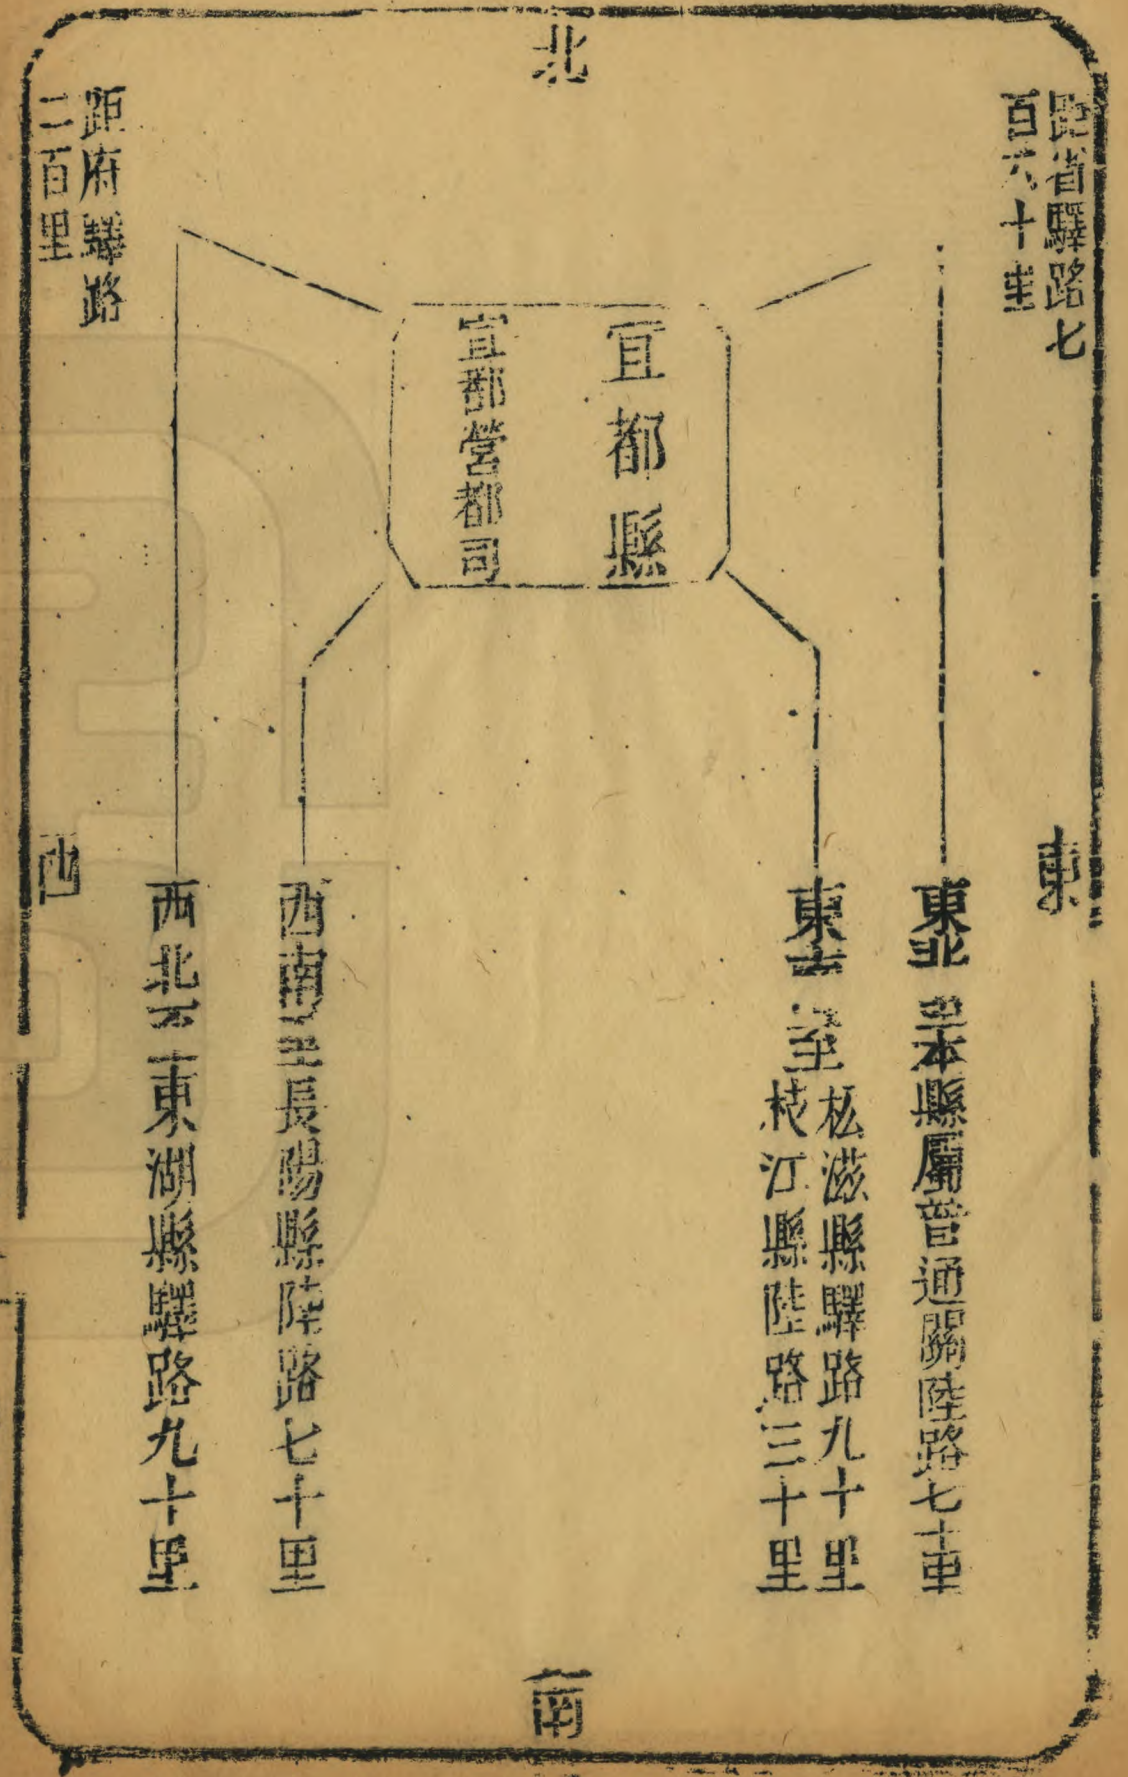 北
距省驛路七
百六十里
東
距府驛路
二百里
西
宜都縣
宜都營都司
東北 至本縣屬普通關陸路七十里
東南 至
松滋縣驛路九十里
枝江縣陸路三十里
西南至長陽縣陸路七十里
西北至東湖縣驛路九十里
南